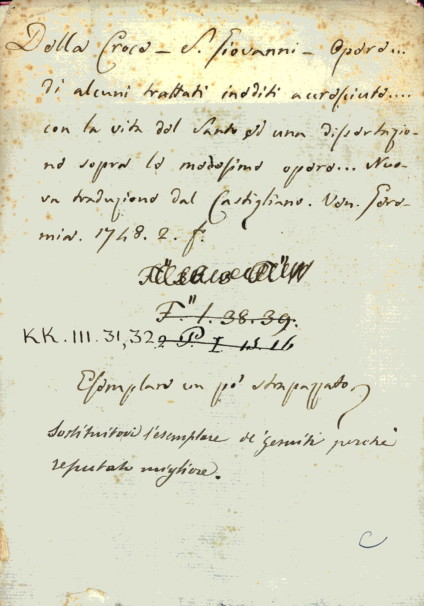 Della Croce – S. Giovanni – Opere...
di alcuni trattati inediti accresciute....
con la vita del Santo ed una dissertazio-
ne sopra le medesime opere... Nuo-
va traduzione dal Castigliano. Ven. Gere-
mia. 1748. 2. f.
F" 1.38.39.
KK.III.31,32 2 P. I 15.16
Esemplare un po' strapazzato
Sostituitovi l'esemplare de' gesuiti perchè
reputato migliore.
C